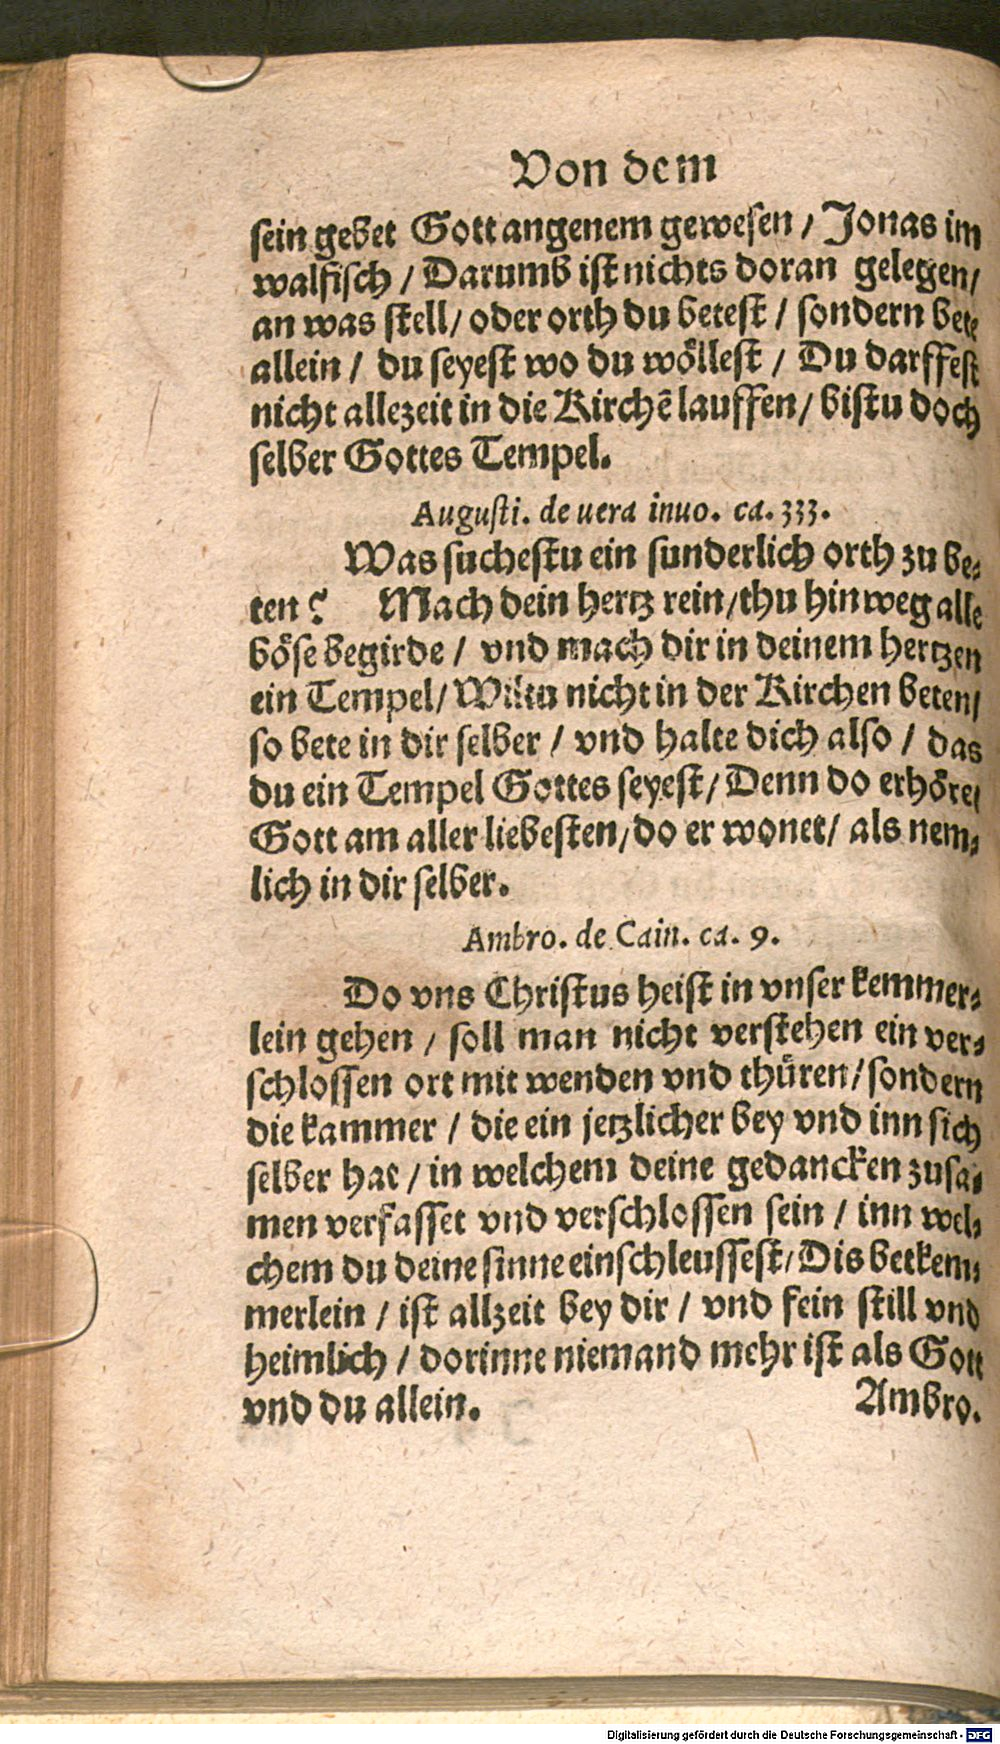 Von dem
sein gebet Gott angenem gewesen / Jonas im
walfisch / Darumb ist nichts doran gelegen /
an was stell / oder orth du betest / sondern bete
allein / du seyest wo du wöllest / Du darffest
nicht allezeit in die Kirchẽ lauffen / bistu doch
selber Gottes Tempel.
Augusti. de uera inuo. ca. 333.
Was suchestu ein sunderlich orth zu be-
ten? Mach dein hertz rein / thu hinweg alle
böse begirde / vnd mach dir in deinem hertzen
ein Tempel / Wiltu nicht in der Kirchen beten /
so bete in dir selber / vnd halte dich also / das
du ein Tempel Gottes seyest / Denn do erhöret
Gott am aller liebesten / do er wonet / als nem-
lich in dir selber.
Ambro. de Cain. ca. 9.
Do vns Christus heist in vnser kemmer-
lein gehen / soll man nicht verstehen ein ver-
schlossen ort mit wenden vnd thüren / sondern
die kammer / die ein jetzlicher bey vnd inn sich
selber hat / in welchem deine gedancken zusa-
men verfasset vnd verschlossen sein / inn wel-
chem du deine sinne einschleussest / Dis betkem-
merlein / ist allzeit bey dir / vnd fein still vnd
heimlich / dorinne niemand mehr ist als Gott
vnd du allein. Ambro.
Digitalisierung gefördert durch die Deutsche Forschungsgemeinschaft - DFG